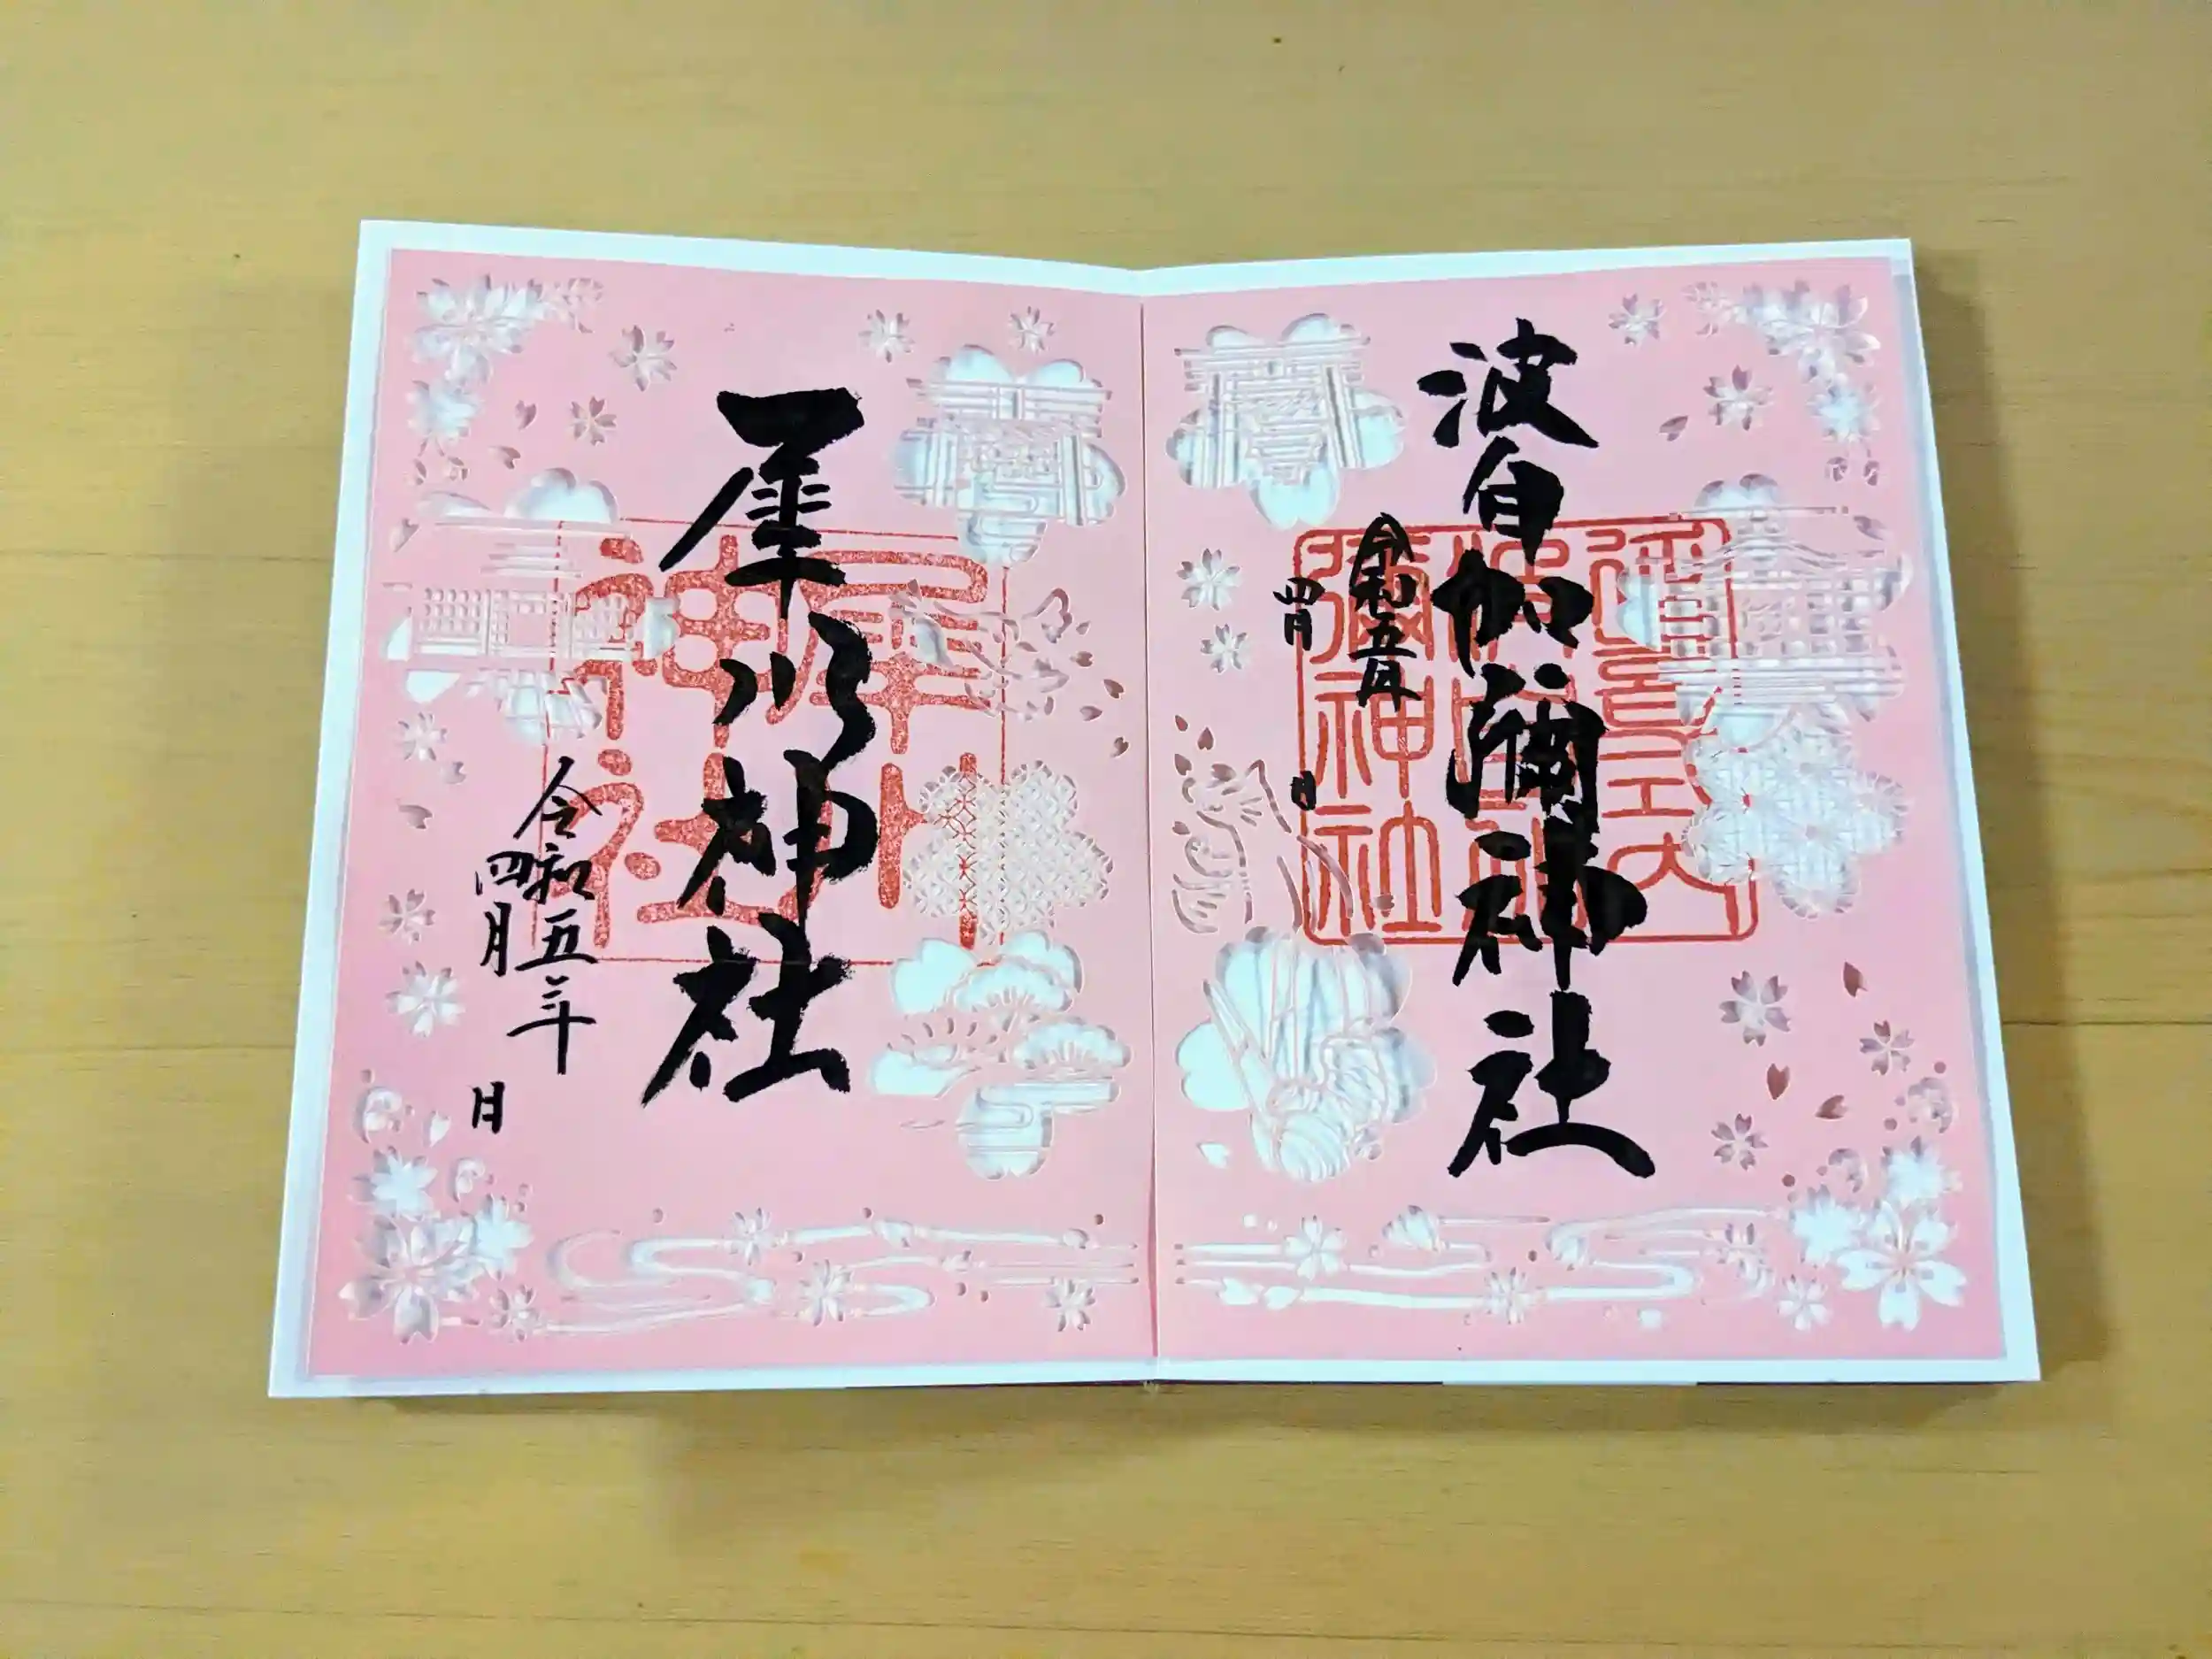 波自加彌神社
令和五年
四月 日
延喜式内
波自加
彌神社
犀川神社
令和五年
四月 日
犀川
神社